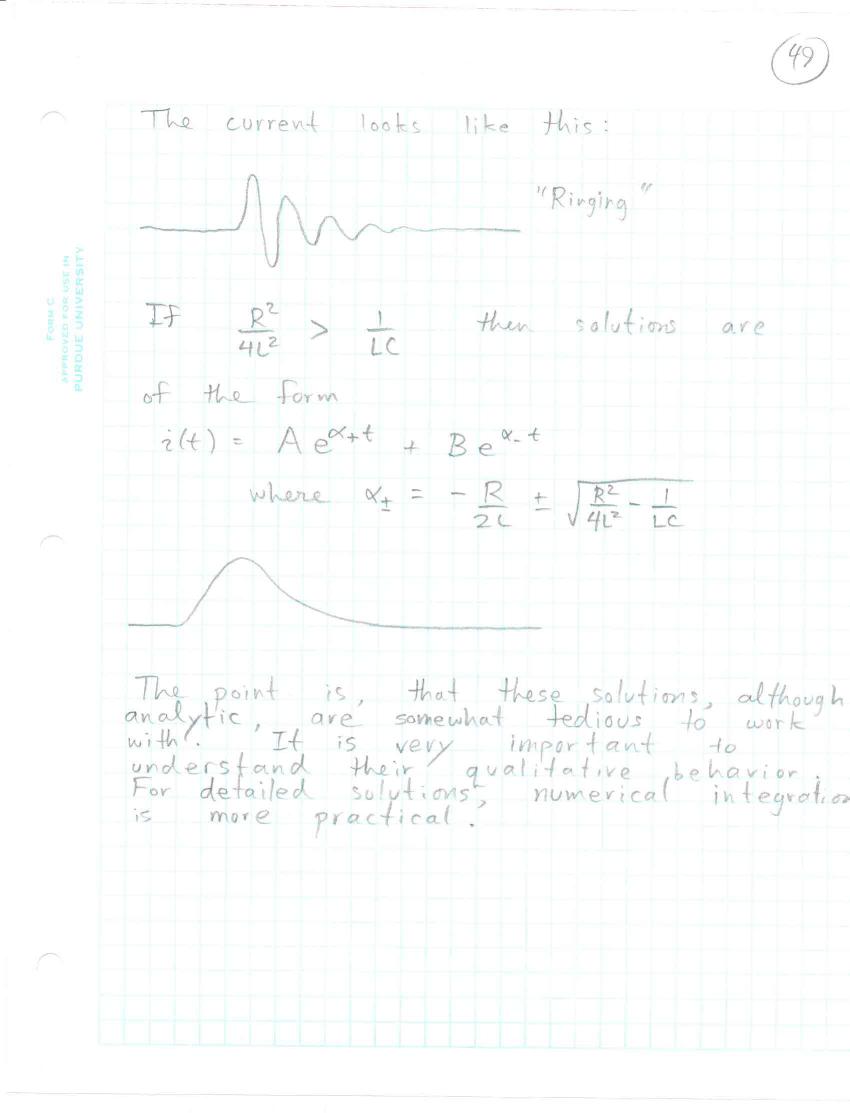 49
The current looks like this:
"Ringing"
If R²/4L² > 1/LC then solutions are
of the form
i(t) = A e^α₊t + B e^α₋t
where α± = - R/2L ± √(R²/4L² - 1/LC)
The point is, that these solutions, although
analytic, are somewhat tedious to work
with. It is very important to
understand their qualitative behavior.
For detailed solutions, numerical integration
is more practical.
FORM C
APPROVED FOR USE IN
PURDUE UNIVERSITY